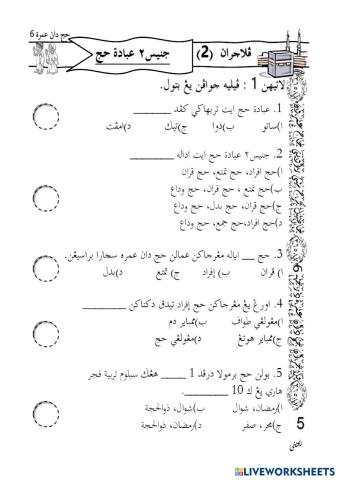 حج دان عمرة 6
ڤلاجرن (2) جنيس٢ عبادة حج
لاتيهن 1 : ڤيليه جواڤن يڠ بتول.
1. عبادة حج ايت تربهاݢي کڤد ________
ا)ساتو ب)دوا ج)تيݢ د)امڤت
2. جنيس٢ عبادة حج ايت اداله ________
ا)حج افراد، حج تمتع، حج قران
ب)حج تمتع ، حج قران، حج وداع
ج)حج قران، حج بدل، حج وداع
د)حج افراد،حج جمع، حج وداع
3. حج ___ اياله مڠرجاکن عملن حج دان عمره سچارا براسيڠن.
ا) قران ب) إفراد ج) تمتع د)بدل
4. اورڠ يڠ مڠرجاکن حج إفراد تيدق دکناکن ________
ا)مڠولڠي طواف ب)ممباير دم
ج)ممباير هوتڠ د)مڠولڠي حج
5. بولن حج برمولا درڤد 1 _____ هڠݢ سبلوم تربيت فجر
هاري يڠ ك 10 ________
ا)رمضان، شوال ب)شوال، ذوالحجة
ج)محرم، صفر د)رمضان، ذوالحجة
5
LIVEWORKSHEETS